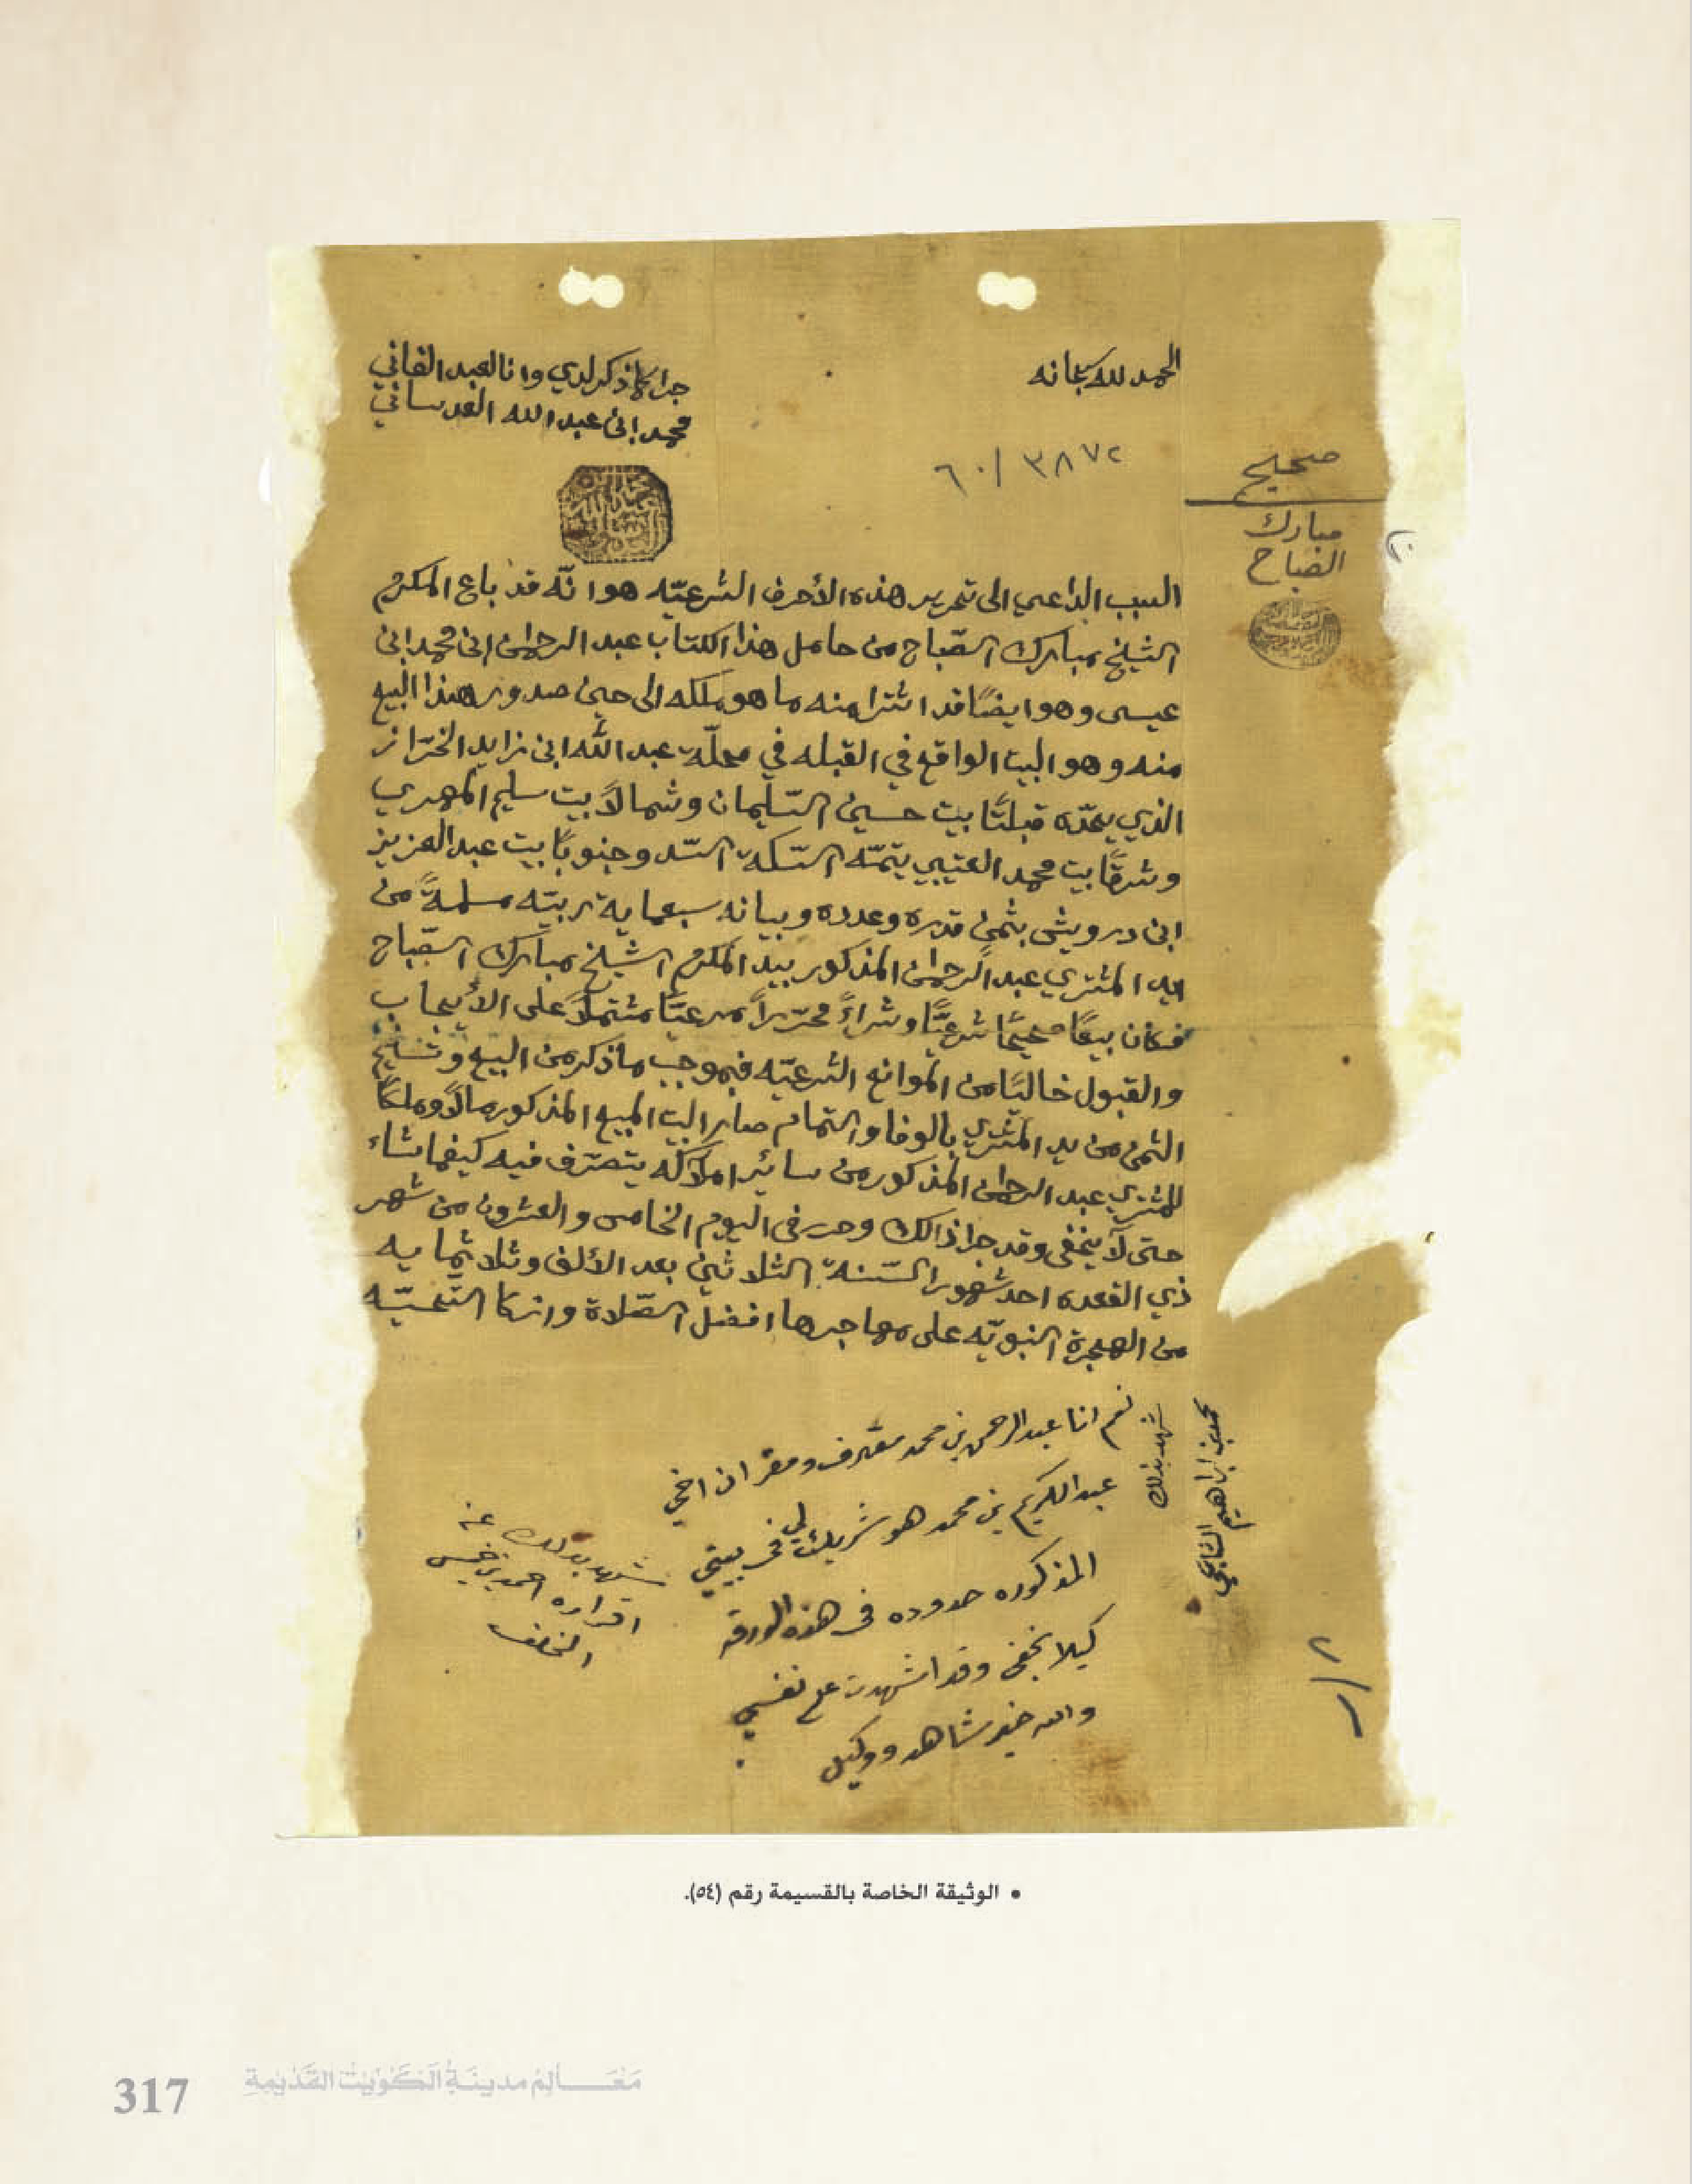 الحمد لله سبحانه
جرا كما ذكر لدي وانا العبد الفاني
محمد ابن عبد الله العدساني
٣٨٧٢/٦٠
صحيح
مبارك
الصباح
السبب الداعي الى تحرير هذه الأحرف الشرعيّه هو انّه قد باع المكرم
الشيخ مبارك الصّباح من حامل هذا الكتاب عبد الرحمان ابن محمد ابن
عيسى وهو ايضًا قد اشترا منه ما هو ملكه الى حين صدور هذا البيع
منه وهو البيت الواقع في القبله في محلّة عبد الله ابن زايد الخرّاز
الذي يحدّه قبلتًا بيت حسين السّليمان وشمالاً بيت سليم المهري
وشرقًا بيت محمد العتيبي يتمّه السّكة السّد وجنوبًا بيت عبد العزيز
ابن درويش بثمن قدره وعدده وبيانه سبعماية ربيّه مسلمةً من
ايد المشتري عبد الرحمان المذكور بيد المكرم الشيخ مبارك الصّباح
فكان بيعًا صحيحًا شرعيًّا وشراءً محرّراً مرعيًّا مشتملاً على الأيجاب
والقبول خاليًا من الموانع الشرعيّه فبموجب ما ذكر من البيع وتسليم
الثمن من يد المشتري بالوفا والتمام صار البيت المبيع المذكور مالاً وملكًا
للمشتري عبد الرحمان المذكور من سائر املاكه يتصرّف فيه كيفما شاء
حتى لا يخفى وقد جرا ذالك وحرر في اليوم الخامس والعشرون من شهر
ذي القعده احد شهور السّنة الثلاثين بعد الألف وثلاثمايه
من الهجرة النبويّه على مهاجرها افضل الصّلاة وازكا التّحيّه
نعم انا عبدالرحمن بن محمد معترف ومقر ان اخي
عبدالكريم بن محمد هو شريك لي في بيتي
المذكوره حدوده في هذه الورقه
كيلا يخفى وقد اشهدت على نفسي
والله خير شاهد ووكيل
شهد بذلك
محمد بن ابراهيم
شهد بذلك عن
اقراره احمد بن خميس
الخلف
٢
• الوثيقة الخاصة بالقسيمة رقم (٥٤).
317
مَعَالِمُ مدينَةِ الكُوَيْت القَدْيمةِ